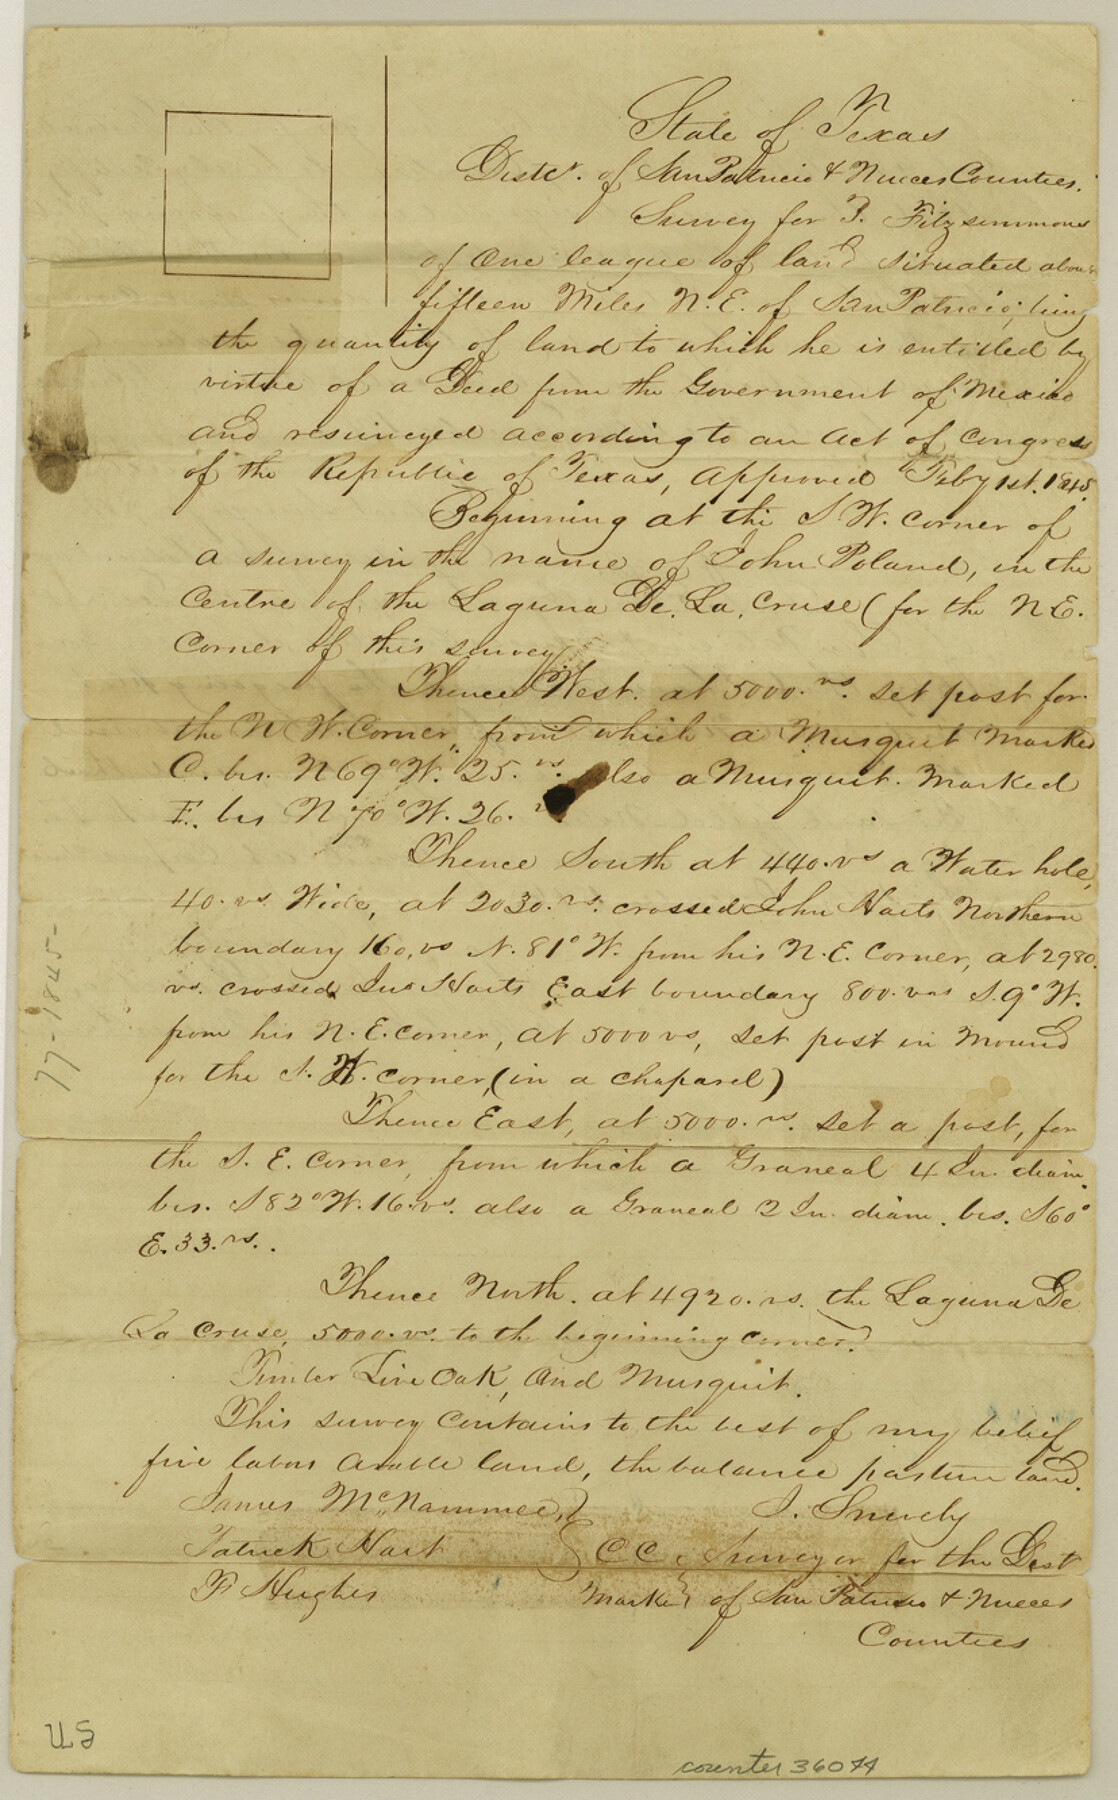 N
State of Texas
Distr. of San Patricio & Nueces Counties.
Survey for P. Fitzsimmons
of One league of land situated about
fifteen Miles N.E. of San Patricio, being
the quantity of land to which he is entitled by
virtue of a Deed from the Government of Mexico
and resurveyed according to an Act of Congress
of the Republic of Texas, approved Feby 1st. 1845.
Beginning at the S W. corner of
a survey in the name of John Poland, in the
Centre of the Laguna De. La. Cruse (for the N E.
Corner of this survey
Thence West. at 5000. vs. set post for
the N W. Corner, from which a Musquit marked
C. brs. N 69° W. 25. vs. also a Musquit. Marked
F. brs N 70° W. 26. vs.
Thence South at 440. vs a Water hole,
40. vs. Wide, at 2030. vs. crossed John Harts Northern
boundary 160, vs N. 81° W. from his N. E. Corner, at 2980.
vs. crossed Jno Harts East boundary 800. vas S. 9° W.
from his N. E. corner, at 5000 vs, set post in Mound
for the S. W. corner, (in a chaparel)
Thence East, at 5000. vs. set a post, for
the S. E. Corner, from which a Graneal 4 In. diam.
brs. S 82° W. 16. vs. also a Graneal 2 In. diam. brs. S 60°
E. 33. vs.
Thence North. at 4920. vs. the Laguna De
La Cruse, 5000. vs. to the beginning corner.
Timber Live Oak, and Musquit.
This survey Contains to the best of my belief
five labors arable land, the balance pasture land.
James McNammee, } J. Snively
Patrick Hart } C C Surveyor for the Dist
P Hughes Marker } of San Patricio & Nueces
Counties
77-1845-
counter 36044